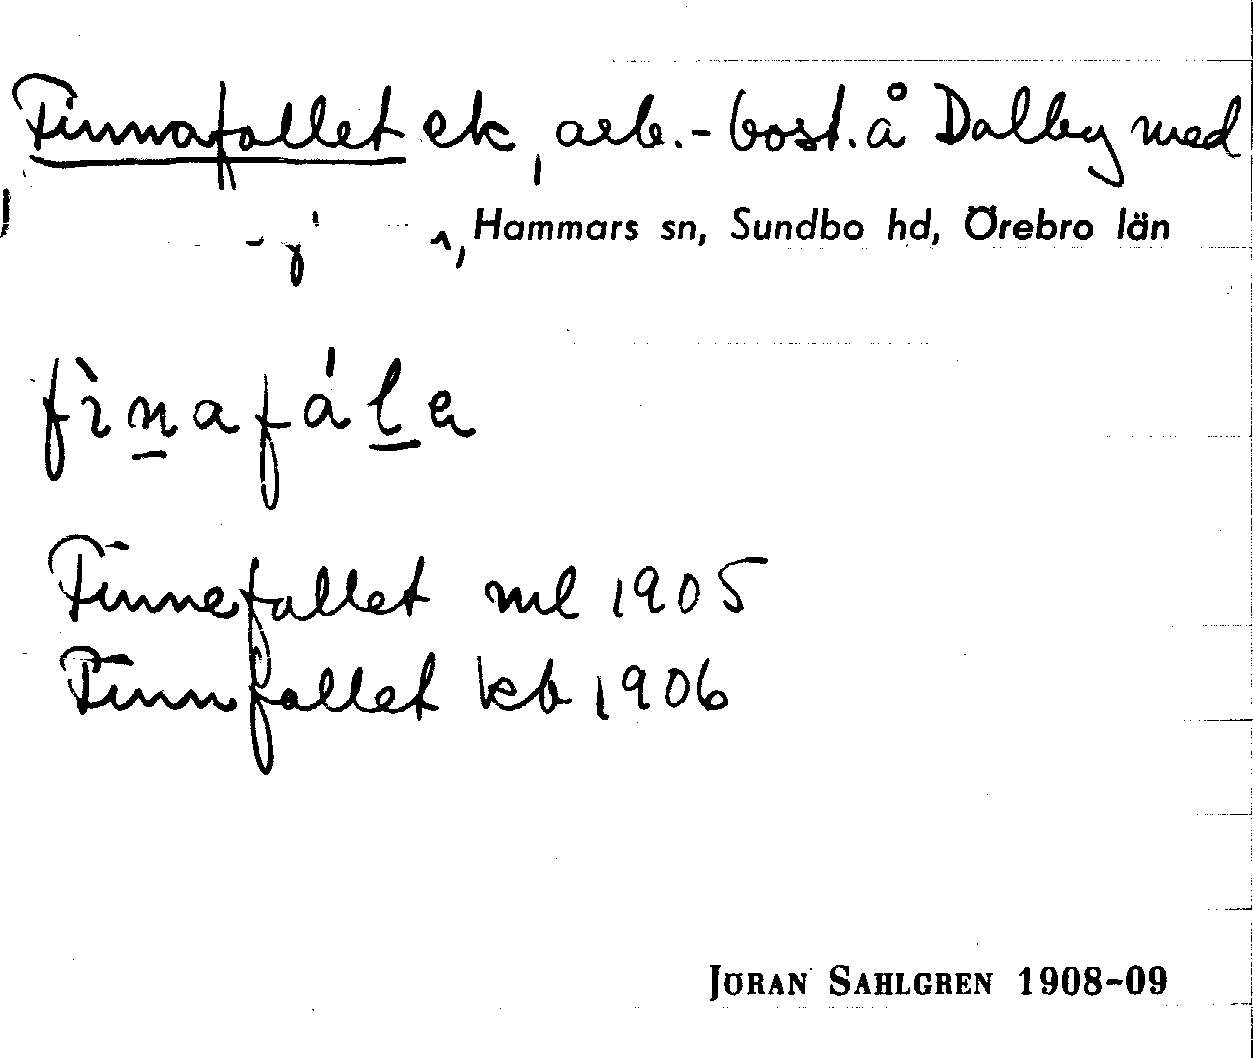 Finnafallet ek, arb.-bost. å Dalby med
Hammars sn, Sundbo hd, Örebro län
fìnafála
Finnefallet ml 1905
Finnfallet kb 1906
JÖRAN SAHLGREN 1908-09